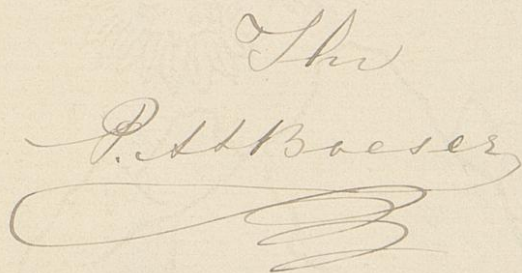 Ihr
P. A A Boeser